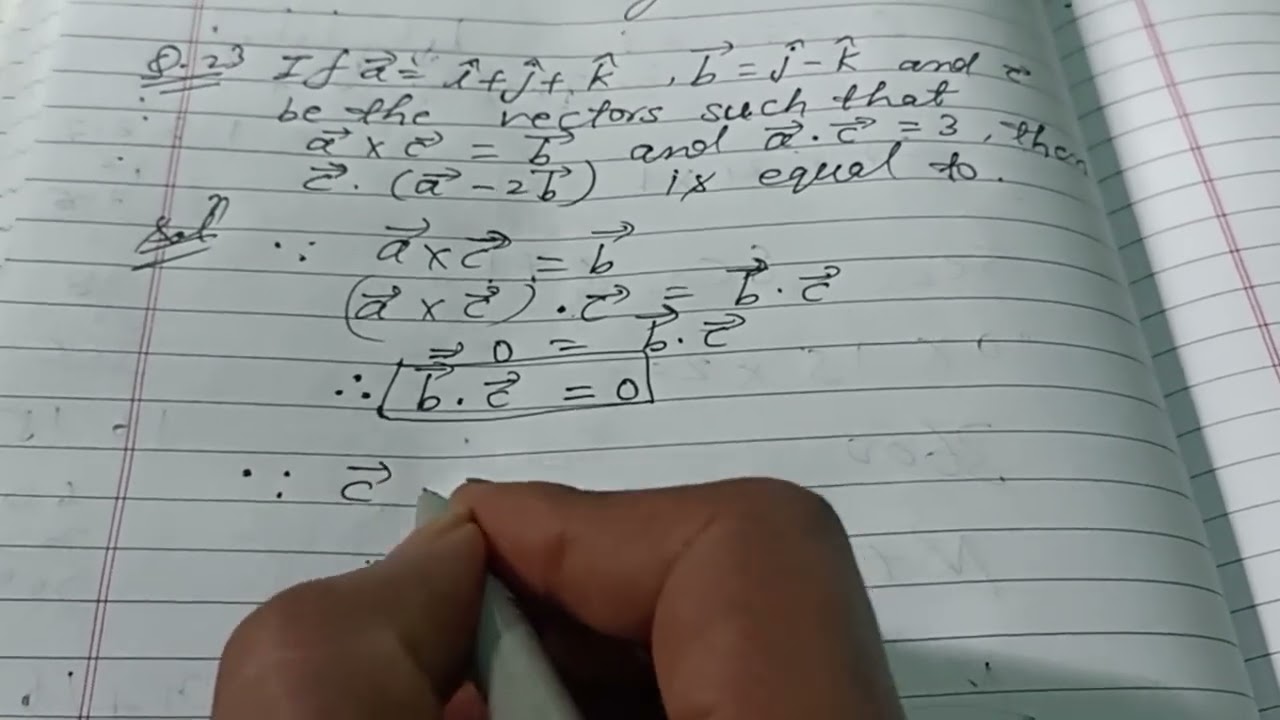 Q.23 If a⃗ = î+ĵ+k̂, b⃗ = ĵ-k̂ and c⃗
be the vectors such that
a⃗ × c⃗ = b⃗ and a⃗ . c⃗ = 3, then
c⃗ . (a⃗ - 2b⃗) is equal to.
Solⁿ ∵ a⃗ × c⃗ = b⃗
(a⃗ × c⃗) . c⃗ = b⃗ . c⃗
⇒ 0 = b⃗ . c⃗
∴ b⃗ . c⃗ = 0
∵ c⃗